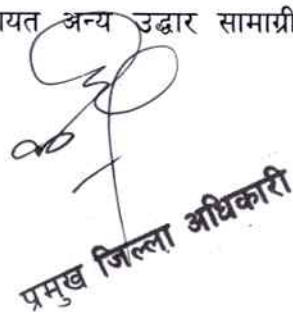 यत अन्य उद्धार सामाग्री
प्रमुख जिल्ला अधिकारी